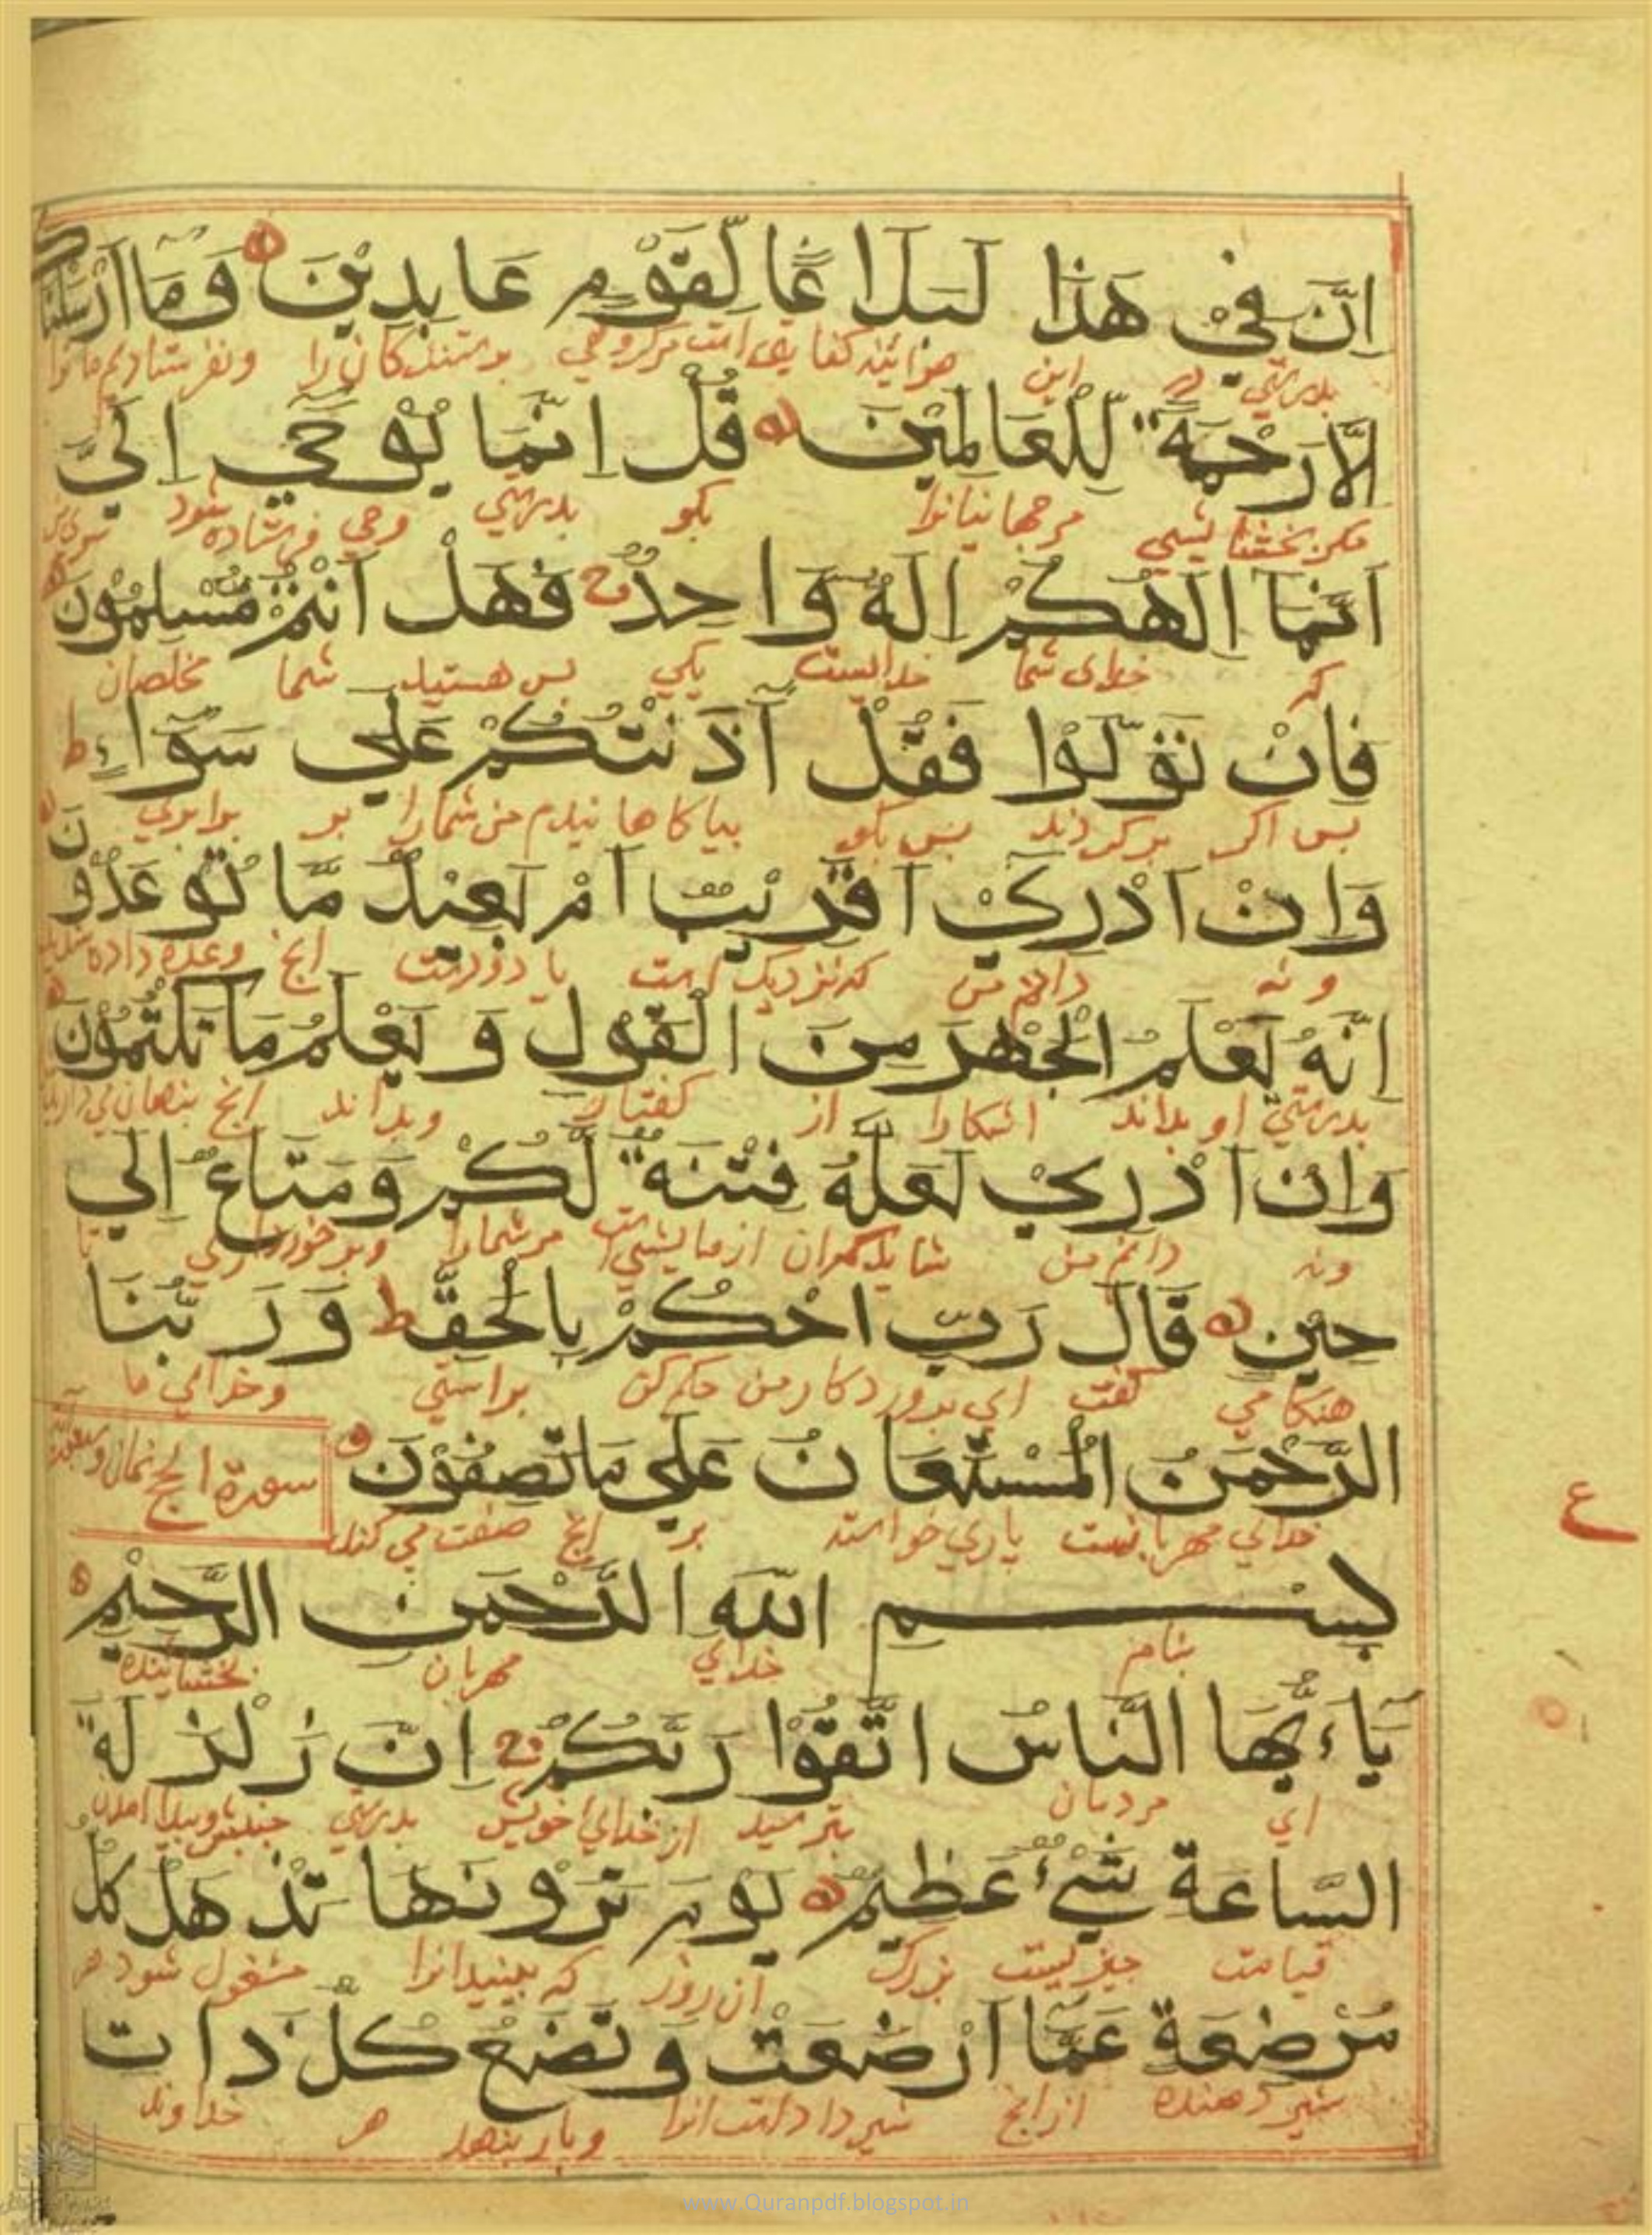 اِنَّ فِيْ هٰذَا لَبَلَاغًا لِّقَوْمٍ عَابِدِيْنَ وَمَا اَرْسَلْنَاكَ
بدرستي در این هرآئینه کفایتی است مر گروهی پرستندکان را ونفرستادیم ما ترا
اِلَّا رَحْمَةً لِّلْعَالَمِيْنَ قُلْ اِنَّمَا يُوْحٰي اِلَيَّ
مکر بخشایشی مر جهانیانرا بکو بدرستي وحي فرستاده شود سوی من
اَنَّمَا اِلٰهُكُمْ اِلٰهٌ وَّاحِدٌ ج فَهَلْ اَنْتُمْ مُّسْلِمُوْنَ
که خدای شما خدائیست یکي پس هستید شما مخلصان
فَاِنْ تَوَلَّوْا فَقُلْ آذَنْتُكُمْ عَلٰي سَوَآءٍ ط
پس اکر برکردند پس بکو بیاکاهانیدم من شمارا بر برابري
وَاِنْ اَدْرِيْ اَقَرِيْبٌ اَمْ بَعِيْدٌ مَّا تُوْعَدُوْنَ
ونه دانم من که نزدیک است یا دورست انچ وعده داده شدید
اِنَّهُ يَعْلَمُ الْجَهْرَ مِنَ الْقَوْلِ وَ يَعْلَمُ مَا تَكْتُمُوْنَ
بدرستي او بداند اشکارا از کفتار وبداند انچ پنهان مي دارید
وَاِنْ اَدْرِيْ لَعَلَّهُ فِتْنَةٌ لَّكُمْ وَمَتَاعٌ اِلٰي
ونه دانم من شاید کمران ازمایشي است مر شمارا وبرخورداری تا
حِيْنٍ قَالَ رَبِّ احْكُمْ بِالْحَقِّ ط وَرَبُّنَا
هنکامي کفت اي پروردکار من حکم کن براستي وخدای ما
الرَّحْمٰنُ الْمُسْتَعَانُ عَلٰي مَا تَصِفُوْنَ
سورة الحج
خدای مهربانست یاري خواسته بر انچ صفت مي کنند
بِسْمِ اللّٰهِ الرَّحْمٰنِ الرَّحِيْمِ
بنام خدای مهربان بخشاینده
يَآءَيُّهَا النَّاسُ اتَّقُوْا رَبَّكُمْ ج اِنَّ زَلْزَلَةَ
اي مردمان بترسید از خدای خویش بدرستي
السَّاعَةِ شَيْءٌ عَظِيْمٌ يَوْمَ تَرَوْنَهَا تَذْهَلُ كُلُّ
قیامت چیزیست بزرک ان روز که ببینید انرا مشغول شود هر
مُرْضِعَةٍ عَمَّا اَرْضَعَتْ وَ تَضَعُ كُلُّ ذَاتِ
شیر دهنده از انچ شیر داد است انرا وبار بنهد هر خداوند
ع
www.Quranpdf.blogspot.in